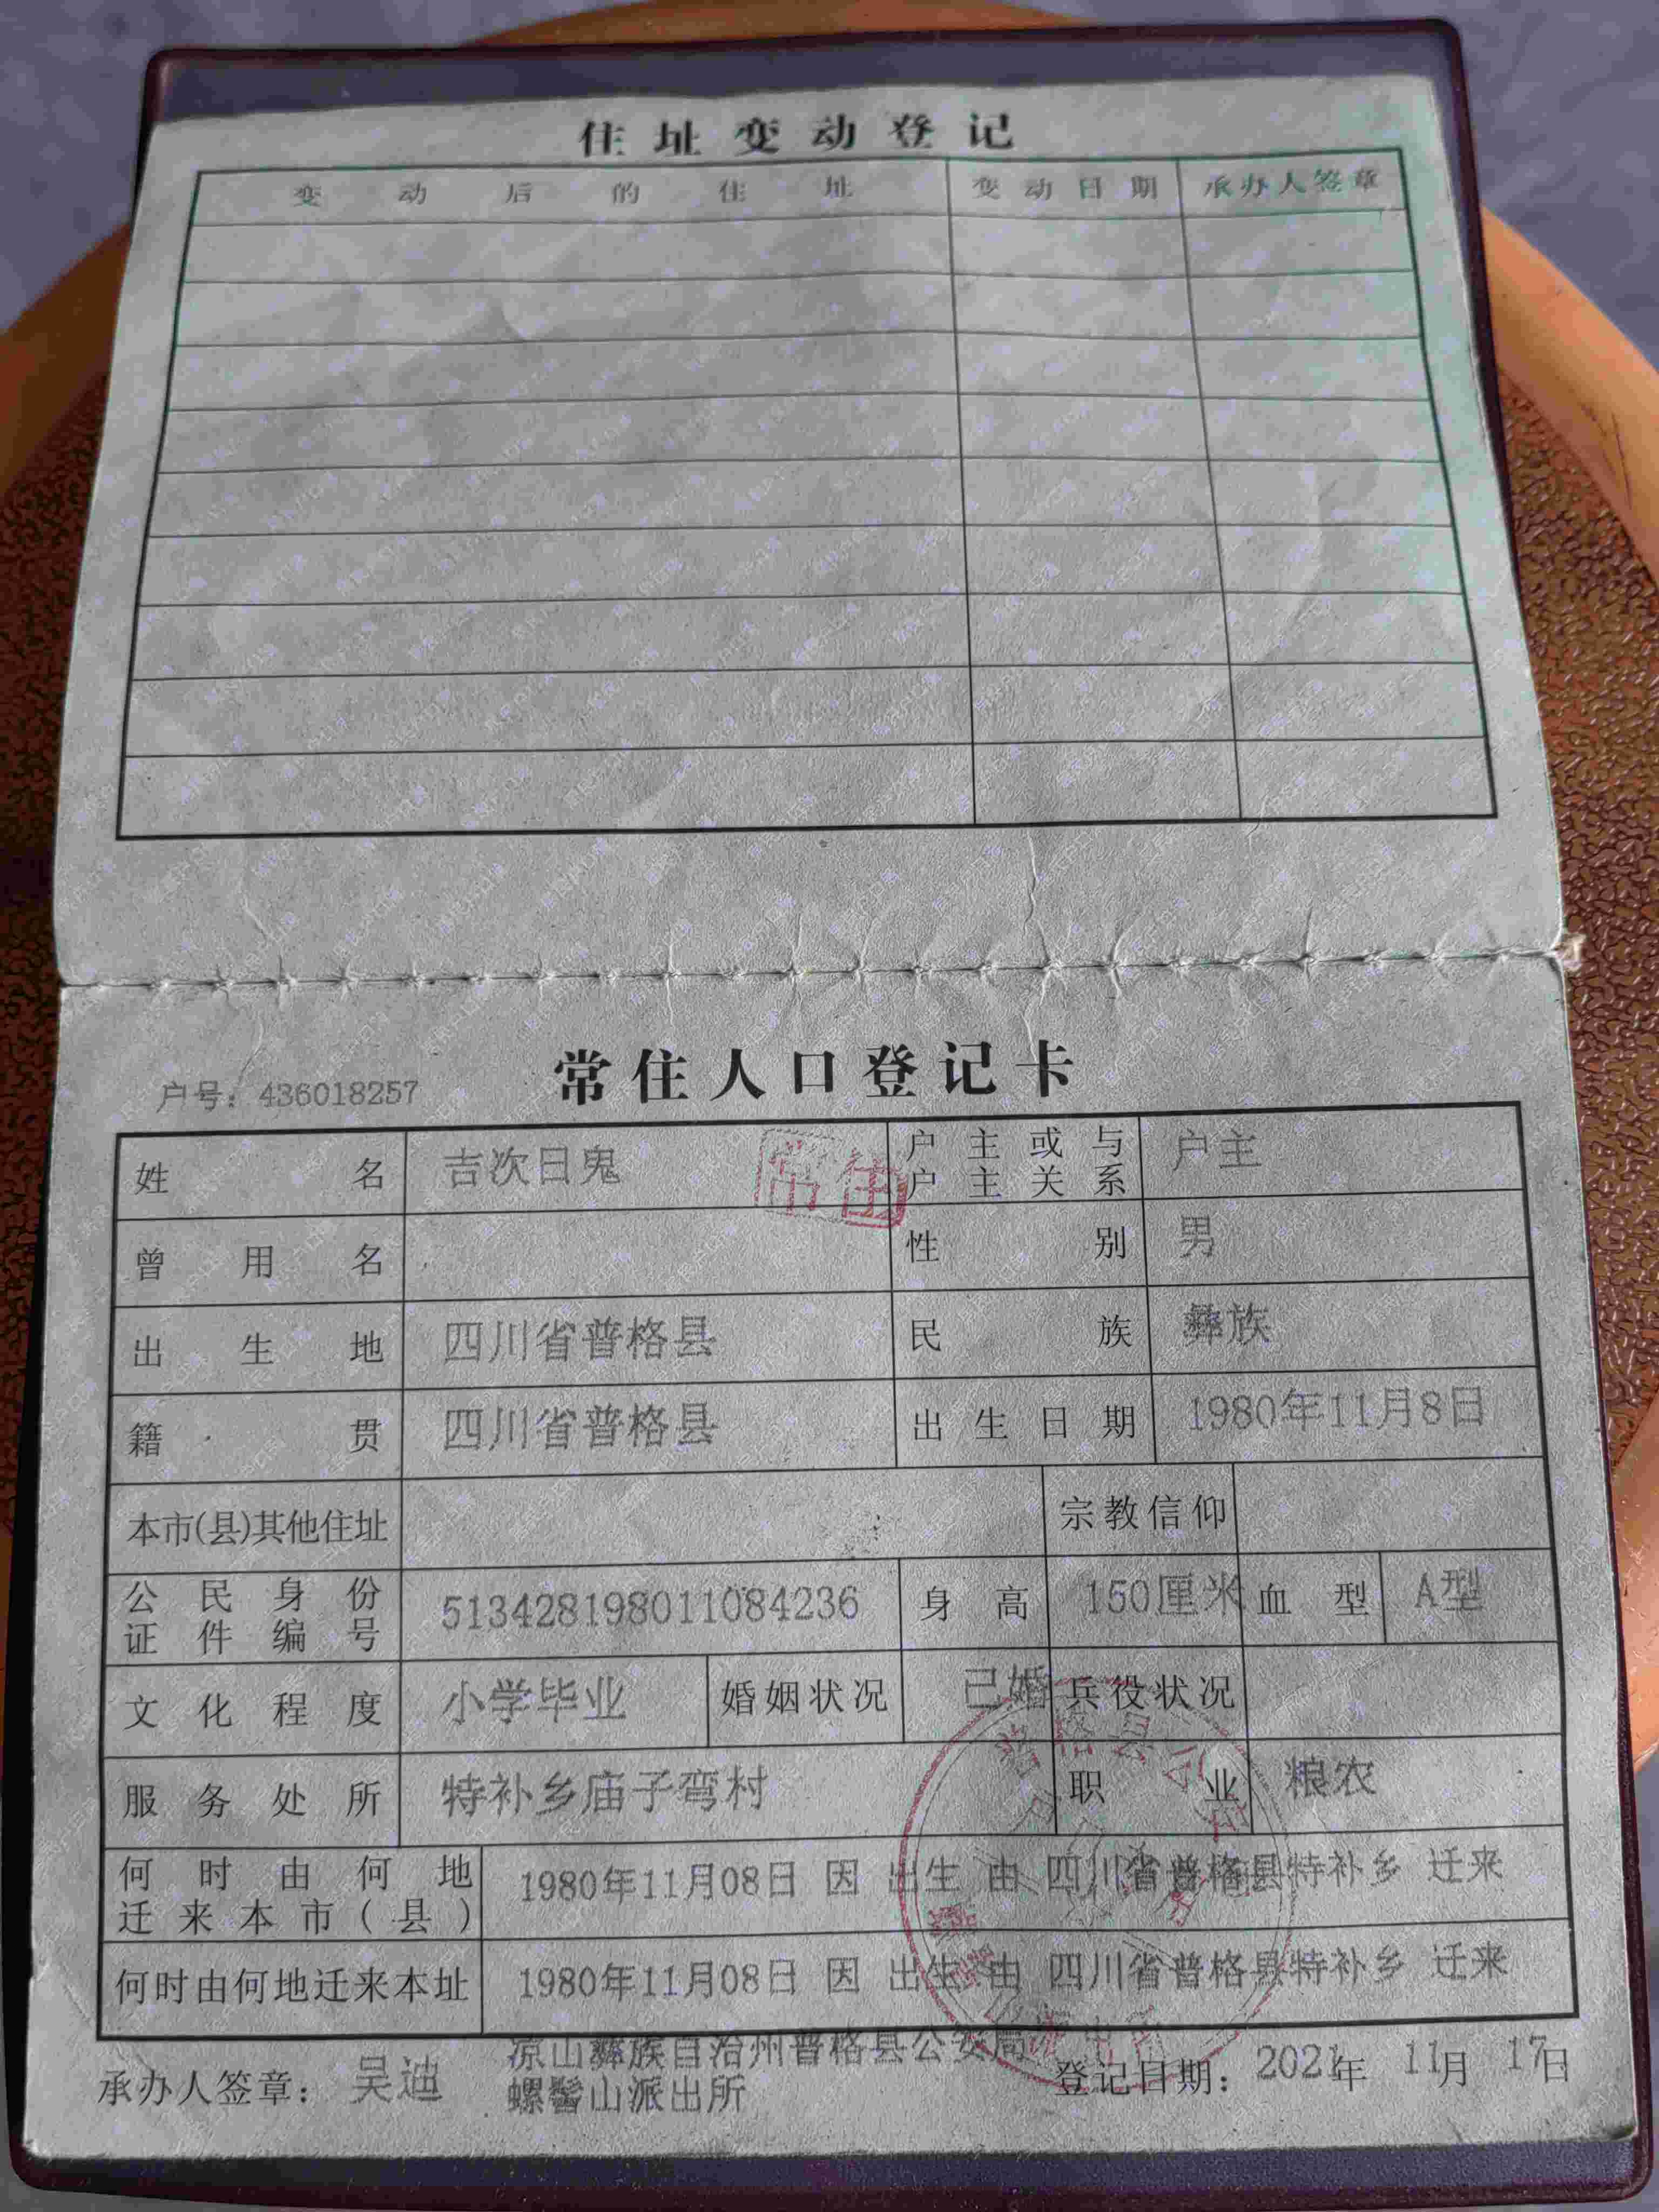 住址变动登记
变动后的住址 变动日期 承办人签章
常住人口登记卡
户号：436018257
姓名 吉次日鬼 常住 户主或与户主关系 户主
曾用名 性别 男
出生地 四川省普格县 民族 彝族
籍贯 四川省普格县 出生日期 1980年11月8日
本市(县)其他住址 宗教信仰
公民身份证件编号 513428198011084236 身高 150厘米 血型 A型
文化程度 小学毕业 婚姻状况 已婚 兵役状况
服务处所 特补乡庙子弯村 职业 粮农
何时由何地迁来本市(县) 1980年11月08日 因 出生 由 四川省普格县特补乡 迁来
何时由何地迁来本址 1980年11月08日 因 出生 由 四川省普格县特补乡 迁来
承办人签章：吴迪 凉山彝族自治州普格县公安局螺髻山派出所 登记日期：2021年11月17日